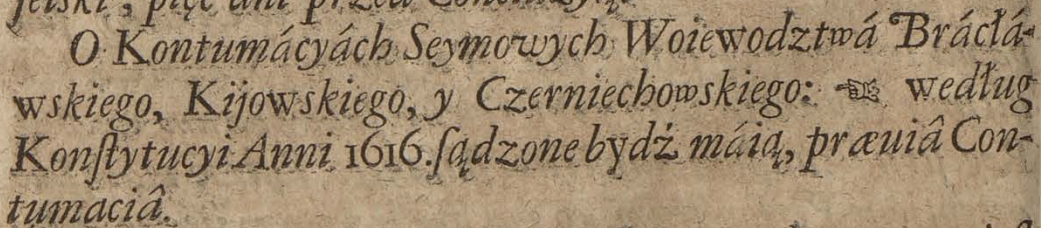 pięć dni przed
O Kontumácyách Seymowych Woiewodztwá Brácłá-
wskiego, Kijowskiego, y Czerniechowskiego: ☜ według
Konſtytucyi Anni 1616. ſądzone bydź máią, præviâ Con-
tumaciâ.